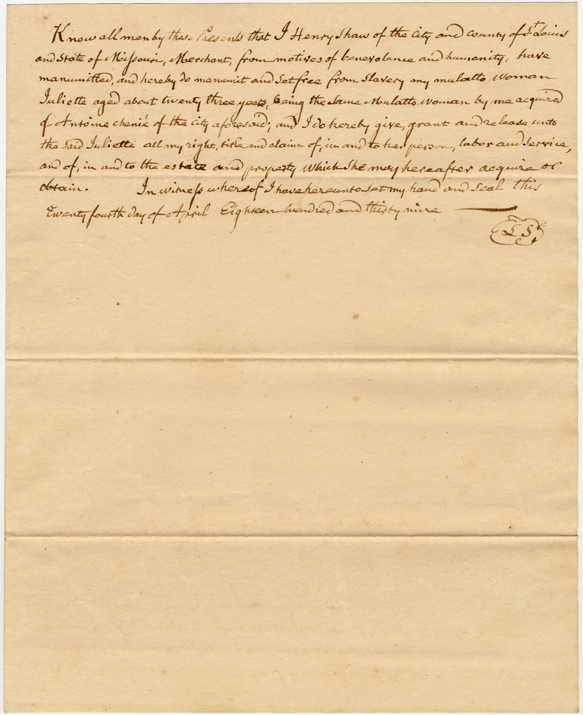 Know all men by these Presents that I Henry Shaw of the City and County of St Louis
and State of Missouri, Merchant, from motives of benevolence and humanity, have
manumitted, and hereby do manumit and Set free from Slavery my mulatto Woman
Juliette aged about twenty three years, being the Same Mulatto Woman by me acquired
of Antoine chenié of the City aforesaid; and I do hereby give, grant and release unto
the Said Juliette all my right, title and claim of, in and to her person, labor and Service,
and of, in and to the estate and property Which She may hereafter acquire or
obtain. In witness whereof I have hereunto set my hand and Seal this
Twenty fourth day of April Eighteen hundred and thirty nine
L S